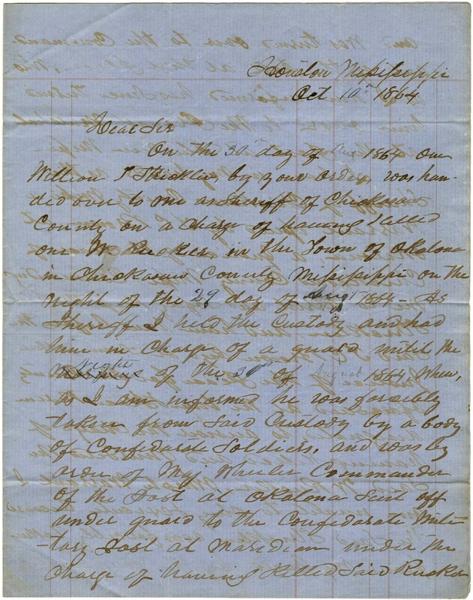 Houston Missippi
Oct 10th 1864
Dear Sir
On the 30th day of Aug 1864 one
William T Stricklin, by your order, was han-
ded over to me as Sheriff of Chickasaw
County on a charge of having killed
one W. Rucker, in the Town of Okalona
in Chickasaw County Missippi on the
night of the 29 day of Aug 1864 - As
Sheriff I held the Custody and had
him in charge of a guard until the
night of the 30th of August 1864, when,
as I am informed he was forcibly
taken from Said Custody by a body
of Confederate Soldiers, and was by
order of Maj Wheeler Commander
of the Post at Okalona Sent off
under guard to the Confederate Mili-
-tary Post at Maredian under the
Charge of having Killed Said Rucker